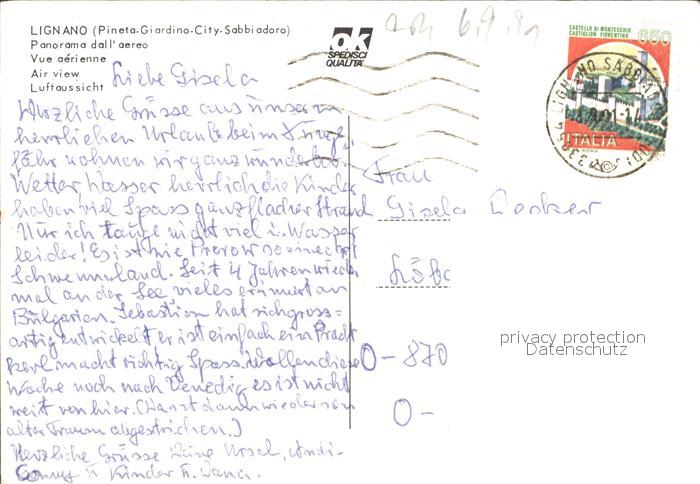 LIGNANO (Pineta-Giardino-City-Sabbiadoro)
Panorama dall'aereo
Vue aérienne
Air view
Luftaussicht
ok
SPEDISCI
QUALITÀ
6.9.91
CASTELLO DI MONTECCHIO
CASTIGLION FIORENTINO
650
ITALIA
ROMA
LIGNANO SABBIAD
Liebe Gisela
Herzliche Grüsse aus unserm
herrlichen Urlaub beim
wohnen wir ganz wunderbar
Wetter, Wasser herrlich die Kinder
haben viel Spass ganz flacher Strand
Nur ich tauge nicht viel i. Wasser
leider! Es ist wie Prerow so ein echt
Schwemmland. Seit 4 Jahren wieder
mal an der See, vieles erinnert an
Bulgarien. Sebastian hat sich gross=
artig entwickelt er ist einfach ein Pracht
kerl macht richtig Spass. Wollen diese
Woche noch nach Venedig es ist nicht
weit von hier. (Da ist dann wieder ein
alter Traum abgestrichen.)
Herzliche Grüsse Deine Ursel, Andi-
Conny u Kinder
Frau
Gisela
Löba
O-870
O-
privacy protection
Datenschutz